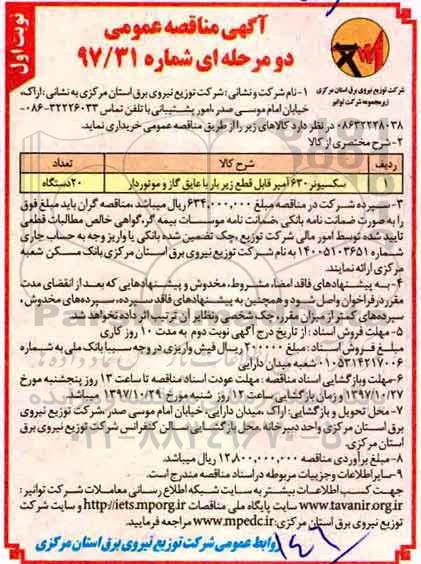 نوبت اول
آگهی مناقصه عمومی
دو مرحله ای شماره ۹۷/۳۱
شرکت توزیع نیروی برق استان مرکزی
زیرمجموعه شرکت توانیر
۱-نام شرکت و نشانی : شرکت توزیع نیروی برق استان مرکزی به نشانی : اراک،
خیابان امام موسی صدر ،امور پشتیبانی با تلفن تماس ۳۲۲۲۶۰۳۳-۰۸۶-
۰۸۶۳۲۲۲۸۰۳۸ در نظر دارد کالاهای زیر را از طریق مناقصه عمومی خریداری نماید.
۲-شرح مختصری از کالا
ردیف شرح کالا تعداد
سکسیونر ۶۳۰ آمپر قابل قطع زیر بار با عایق گاز و موتوردار ۲۰دستگاه
۳-سپرده شرکت در مناقصه مبلغ ۶۳۴,۰۰۰,۰۰۰ریال میباشد .مناقصه گران باید مبلغ فوق
را به صورت ضمانت نامه بانکی ،ضمانت نامه موسسات بیمه گر،گواهی خالص مطالبات قطعی
تایید شده توسط امور مالی شرکت توزیع ،چک تضمین شده بانکی یا واریز وجه به حساب جاری
شماره ۱۴۰۰۵۱۰۳۶۵۱ به نام شرکت توزیع نیروی برق استان مرکزی بانک مسکن شعبه
مرکزی ارائه نمایند.
۴-به پیشنهادهای فاقد امضاء، مشروط، مخدوش و پیشنهادهایی که بعد از انقضای مدت
مقرر درفراخوان واصل شود و همچنین به پیشنهادهای فاقد سپرده، سپرده‌های مخدوش ،
سپرده‌های کمتر از میزان مقرر، چک شخصی و نظایر آن ترتیب اثر داده نخواهد شد.
۵- مهلت فروش اسناد : از تاریخ درج آگهی نوبت دوم به مدت ۱۰ روز کاری
مبلغ فروش اسناد: مبلغ ۲۰۰۰۰۰ ریال فیش واریزی در وجه سیبا بانک ملی به شماره
۰۱۰۵۳۱۴۲۱۷۰۰۶ شعبه میدان دارایی
۶-مهلت وبازگشایی اسناد مناقصه : مهلت عودت اسناد مناقصه تا ساعت ۱۳ روز پنجشنبه مورخ
۱۳۹۷/۱۰/۲۷ و زمان بازگشایی ساعت ۱۲ روز شنبه مورخ ۱۳۹۷/۱۰/۲۹ میباشد
۷- محل تحویل و بازگشایی: اراک ،میدان دارایی، خیابان امام موسی صدر ،شرکت توزیع نیروی
برق استان مرکزی واحد دبیرخانه .محل بازگشایی سالن کنفرانس شرکت توزیع نیروی برق
استان مرکزی
۸-مبلغ برآوردی مناقصه ۱۲,۸۰۰,۰۰۰,۰۰۰ ریال میباشد.
۹-سایراطلاعات وجزییات مربوطه دراسناد مناقصه مندرج است.
جهت کسب اطلاعات بیشتر به سایت شبکه اطلاع رسانی معاملات شرکت توانیر :
www.tavanir.org.ir سایت پایگاه ملی مناقصات http://iets.mporg.ir و سایت شرکت
توزیع نیروی برق استان مرکزی: www.mpedc.ir مراجعه فرمایید.
روابط عمومی شرکت توزیع نیروی برق استان مرکزی